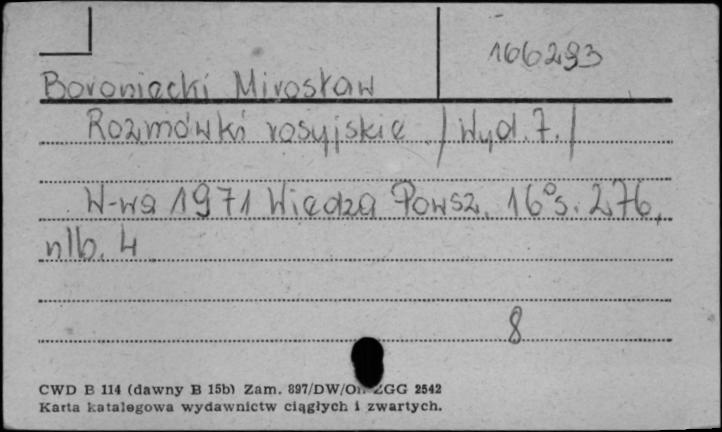 166293
Boroniecki Mirosław
Rozmówki rosyjskie. /Wyd. 7./
W-wa 1971 Wiedza Powsz. 16° s. 276,
nlb. 4
8
CWD B 114 (dawny B 15b) Zam. 897/DW/On ZGG 2542
Karta katalogowa wydawnictw ciągłych i zwartych.